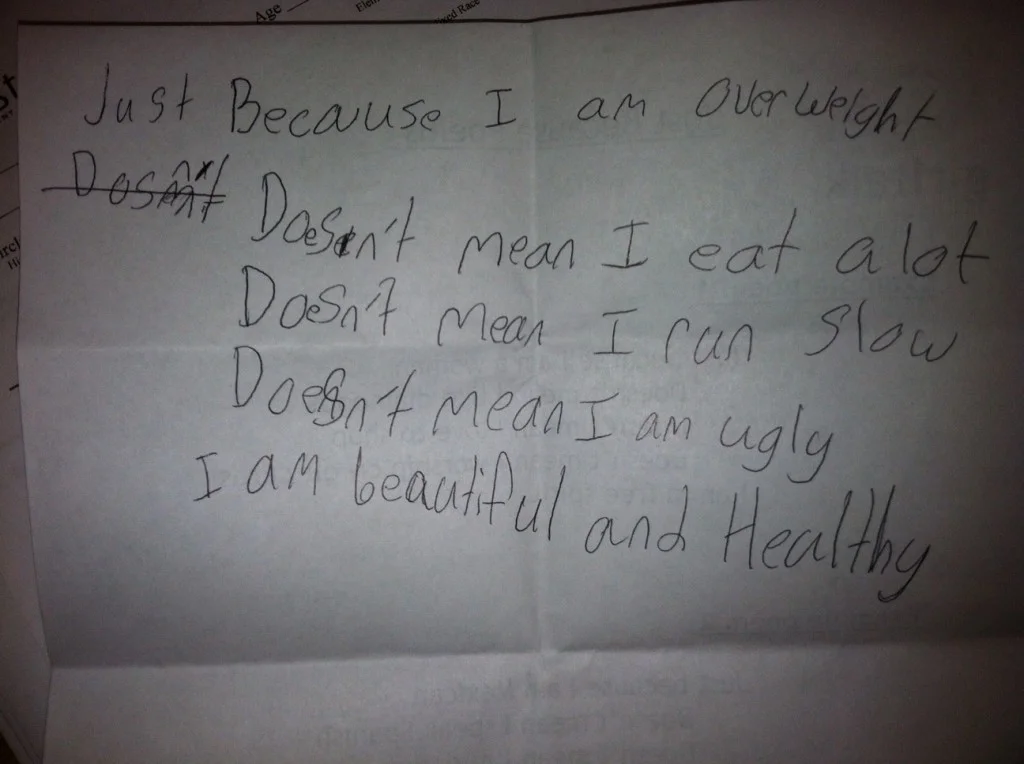 Age
Just Because I am Overweight
Doesn't mean I eat a lot
Doesn't mean I run slow
Doesn't mean I am ugly
I am beautiful and Healthy